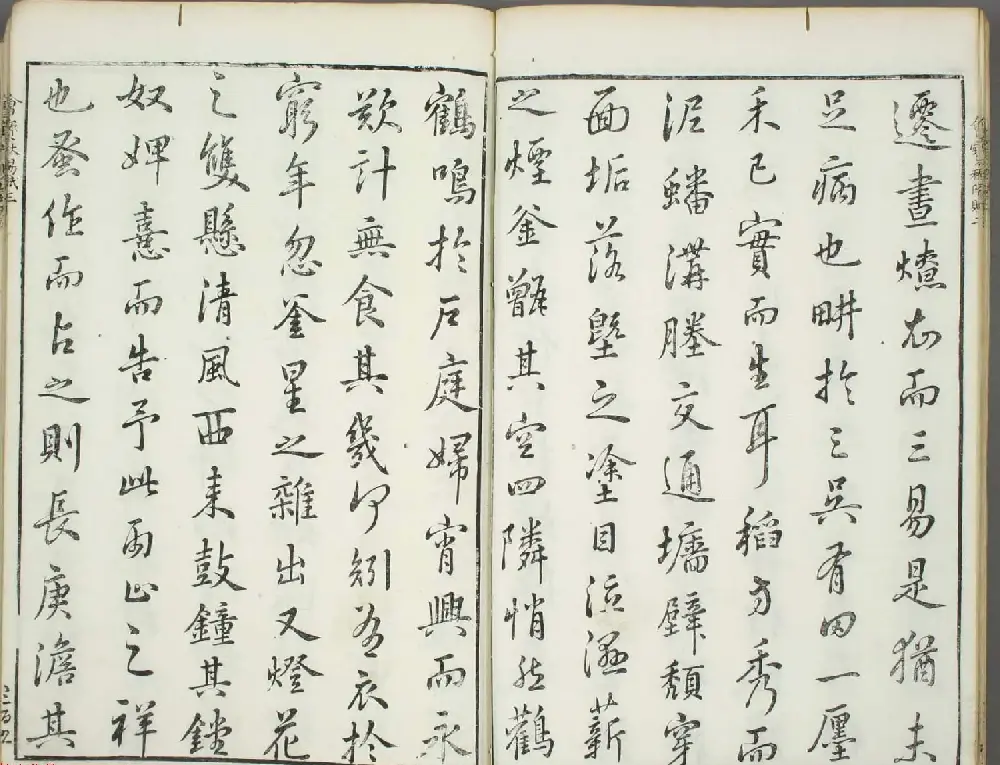 遷晝燎衣而三易是猶未
足病也畊於三吳有田一廛
禾已實而生耳稻方秀而
泥蟠溝塍交通墻壁頹穿
面垢落塈之塗目泣濕薪
之煙釜甑其空四隣悄然鸛
鶴鳴於戶庭婦宵興而永
歎計無食其幾何矧為衣於
窮年忽釜星之雜出又燈花
之雙懸清風西來鼓鐘其鏜
奴婢憙而告予此雨止之祥
也蚤作而占之則長庚澹其